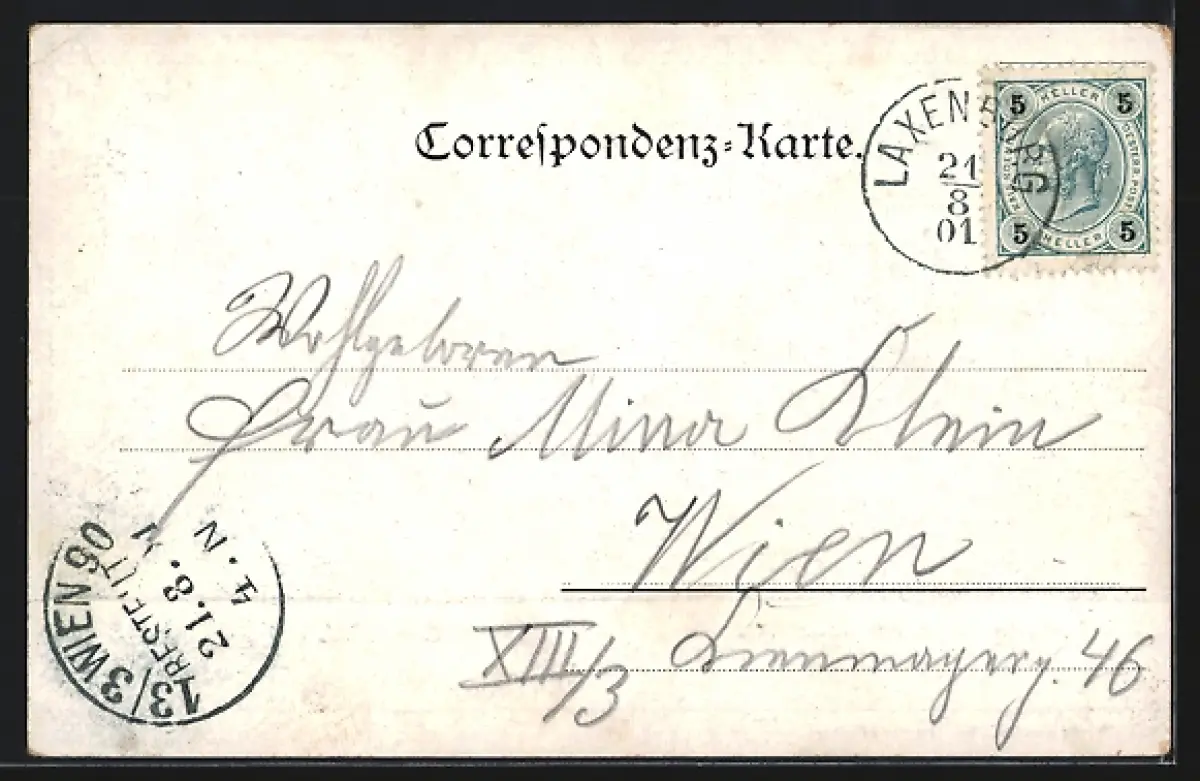 Correſpondenz-Karte.
LAXENBURG
21/8
01
5 HELLER 5
5 HELLER 5
Wohlgeboren
Frau Mina Klein
Wien
XIII/3 Lienmayerg. 46
13/3 WIEN 90
BESTELLT
21.8.
4. N